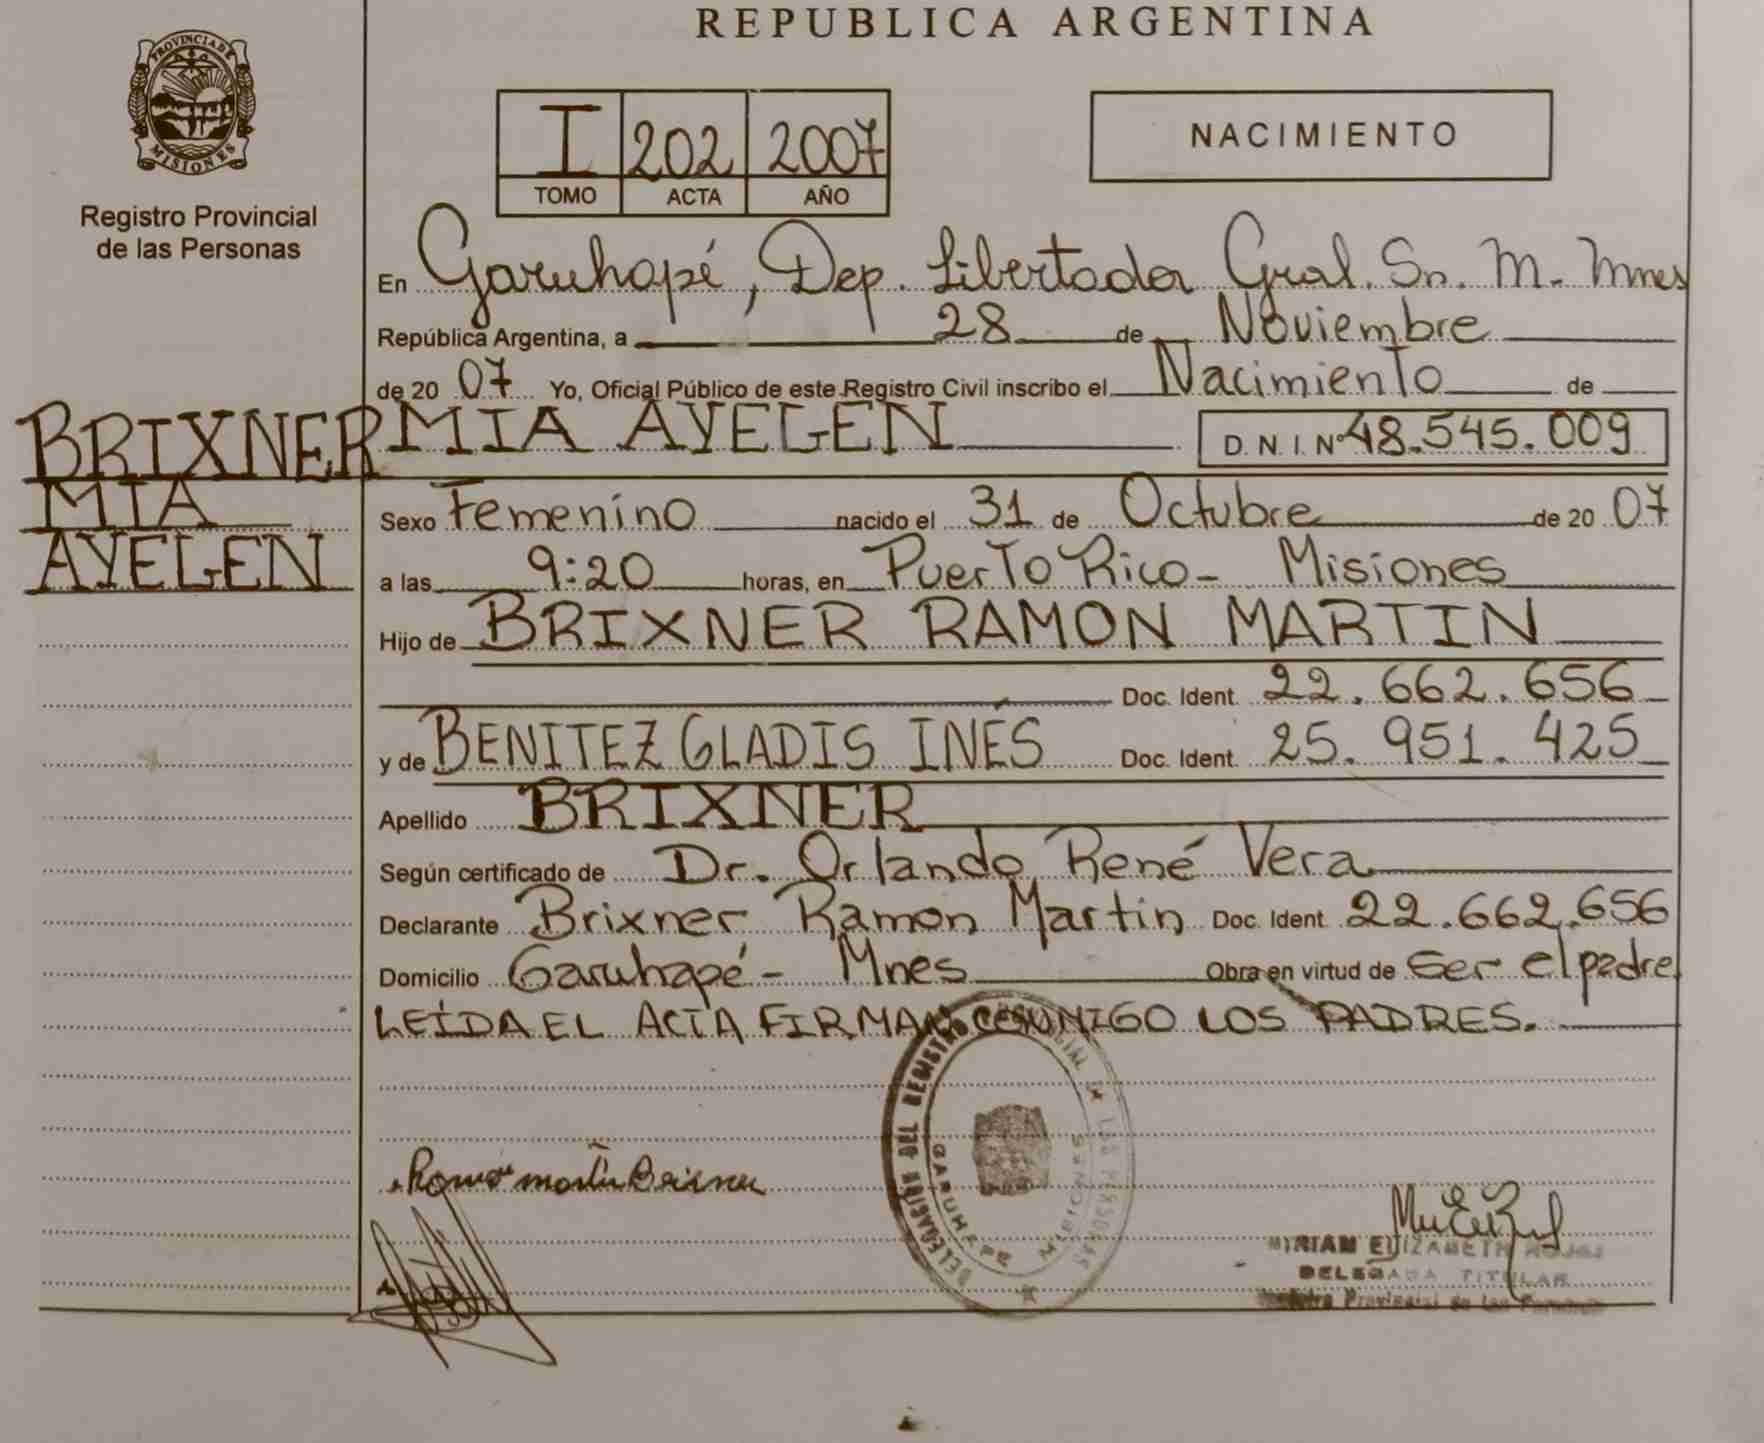 REPUBLICA ARGENTINA
PROVINCIA DE
MISIONES
Registro Provincial
de las Personas
I 202 2007
TOMO ACTA AÑO
NACIMIENTO
En Garuhapé, Dep. Libertador Gral. Sn. M. Mnes
República Argentina, a 28 de Noviembre
de 20 07 Yo, Oficial Público de este Registro Civil inscribo el Nacimiento de
BRIXNER
MIA
AYELEN
MIA AYELEN D.N.I. Nº 48.545.009
Sexo Femenino nacido el 31 de Octubre de 20 07
a las 9:20 horas, en Puerto Rico - Misiones
Hijo de BRIXNER RAMON MARTIN
Doc. Ident. 22.662.656
y de BENITEZ GLADIS INÉS Doc. Ident. 25.951.425
Apellido BRIXNER
Según certificado de Dr. Orlando René Vera
Declarante Brixner Ramon Martin Doc. Ident. 22.662.656
Domicilio Garuhapé - Mnes Obra en virtud de Ser el padre
LEÍDA EL ACTA FIRMAN CONMIGO LOS PADRES.
DELEGACIÓN DEL REGISTRO PROVINCIAL DE LAS PERSONAS
GARUHAPE MISIONES
Ramon martin Brixner
MIRIAM ELIZABETH ROJAS
DELEGADA TITULAR
Registro Provincial de las Personas